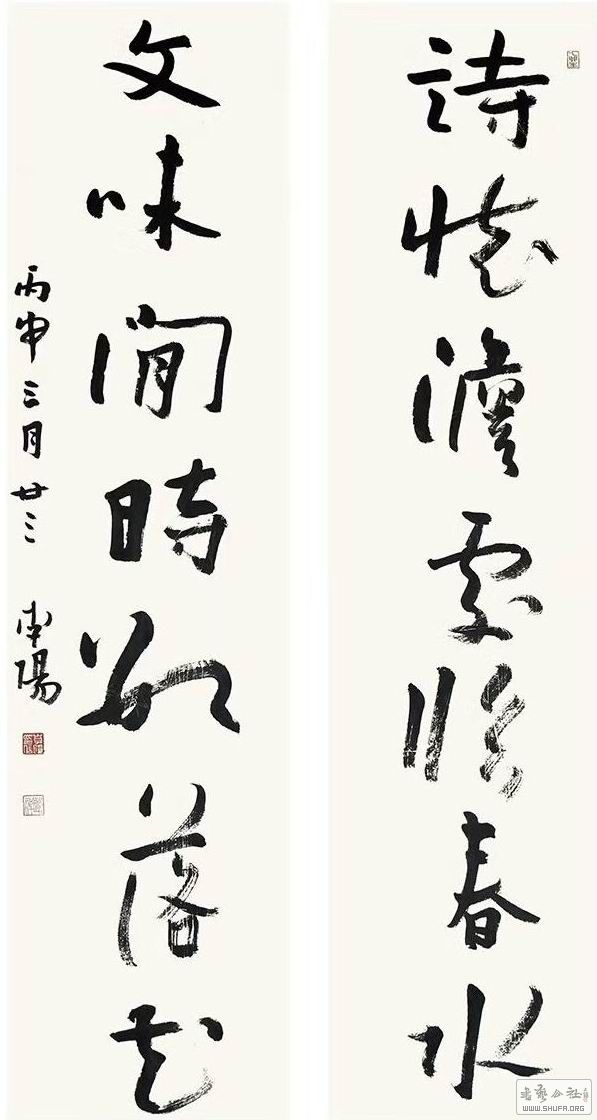 詩懷澹處臨春水
文味閒時數落花
丙申三月廿三 南陽
書藝公社
WWW.SHUFA.ORG